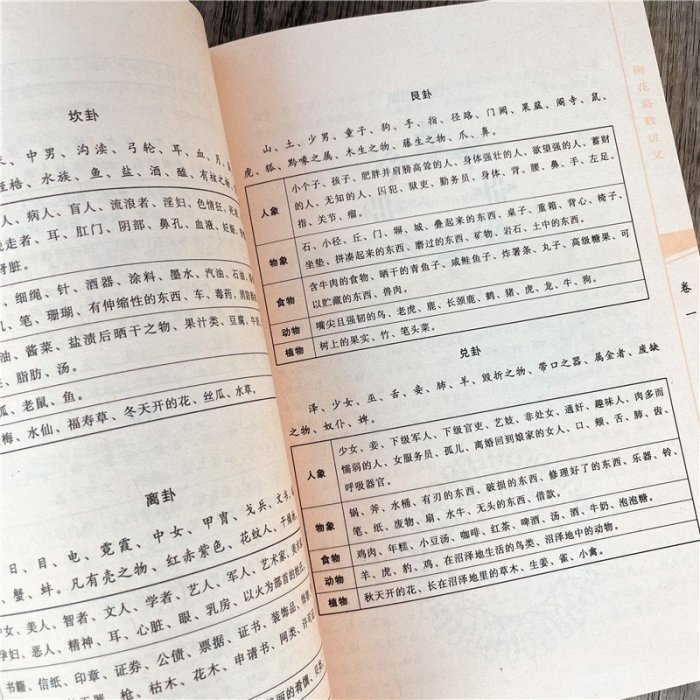 坎卦
、中男、沟渎、弓轮、耳、血、月、
桎梏、水族、鱼、盐、酒、醢、有核之物、
人、病人、盲人、流浪者、淫妇、色情狂、
逃走者、耳、肛门、阴部、鼻孔、血液、妊娠、
肾脏。
、细绳、针、酒器、涂料、墨水、汽油、石油、
几、笔、珊瑚、有伸缩性的东西、车、毒药、
油、酱菜、盐渍后晒干之物、果汁类、豆腐、
、脂肪、汤。
狐、老鼠、鱼。
梅、水仙、福寿草、冬天开的花、丝瓜、水草。
离卦
、日、目、电、霓霞、中女、甲胄、戈兵、文书、
、蟹、蚌。凡有壳之物、红赤紫色、花纹人、干燥
中女、美人、智者、文人、学者、艺人、军人、艺术家、
孕妇、恶人、精神、耳、心脏、眼、乳房、以火为部首的姓氏。
书籍、信纸、印章、证券、公债、票据、证书、装饰品、
、枪、枯木、花木、申请书、
艮卦
山、土、少男、童子、狗、手、指、径路、门阙、果蓏、阍寺、鼠、
虎、狐、黔喙之属、木生之物、藤生之物、爪、鼻。
人象 小个子、孩子、肥胖并肩膀高耸的人、身体强壮的人、欲望强的人、蓄财
的人、无知的人、囚犯、狱吏、勤务员、身体、背、腰、鼻、手、左足、
指、关节、瘤。
物象 石、小径、丘、门、塀、城、叠起来的东西、桌子、重箱、背心、椅子、
坐垫、拼凑起来的东西、磨过的东西、矿物、岩石、土中的东西。
食物 含牛肉的食物、晒干的青鱼子、咸鲑鱼子、炸薯条、丸子、高级糖果、可
以贮藏的东西、兽肉。
动物 嘴尖且强韧的鸟、老虎、鹿、长颈鹿、鹤、猪、虎、龙、牛、狗。
植物 树上的果实、竹、笔头菜。
兑卦
泽、少女、巫、舌、妾、肺、羊、毁折之物、带口之器、属金者、废缺
之物、奴仆、婢。
人象 少女、妾、下级军人、下级官吏、艺妓、非处女、通奸、趣味人、肉多而
懦弱的人、女服务员、孤儿、离婚回到娘家的女人、口、颊、舌、肺、齿、
呼吸器官。
物象 锅、斧、水桶、有刃的东西、破损的东西、修理好了的东西、乐器、铃、
笔、纸、废物、扇、水牛、无头的东西、借款。
食物 鸡肉、年糕、小豆汤、咖啡、红茶、啤酒、汤、酒、牛奶、泡泡糖。
动物 羊、虎、豹、鸡、在沼泽地生活的鸟类、沼泽地中的动物。
植物 秋天开的花、长在沼泽地里的草木、生姜、雀、小禽。
梅花易数讲义
卷一